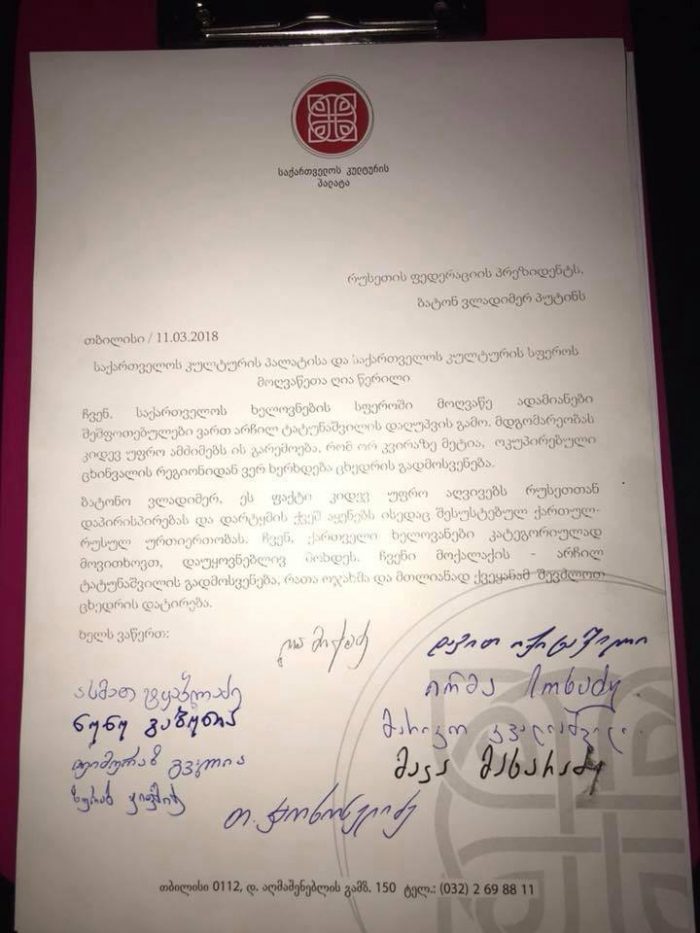 საქართველოს კულტურის
პალატა
რუსეთის ფედერაციის პრეზიდენტს,
ბატონ ვლადიმერ პუტინს
თბილისი / 11.03.2018
საქართველოს კულტურის პალატისა და საქართველოს კულტურის სფეროს
მოღვაწეთა ღია წერილი
ჩვენ, საქართველოს ხელოვნების სფეროში მოღვაწე ადამიანები
შეშფოთებულები ვართ არჩილ ტატუნაშვილის დაღუპვის გამო. მდგომარეობას
კიდევ უფრო ამძიმებს ის გარემოება, რომ ორ კვირაზე მეტია, ოკუპირებული
ცხინვალის რეგიონიდან ვერ ხერხდება ცხედრის გადმოსვენება.
ბატონო ვლადიმერ, ეს ფაქტი კიდევ უფრო აღვივებს რუსეთთან
დაპირისპირებას და დარტყმის ქვეშ აყენებს ისედაც შესუსტებულ ქართულ-
რუსულ ურთიერთობას. ჩვენ, ქართველი ხელოვანები კატეგორიულად
მოვითხოვთ, დაუყოვნებლივ მოხდეს. ჩვენი მოქალაქის - არჩილ
ტატუნაშვილის გადმოსვენება, რათა ოჯახმა და მთლიანად ქვეყანამ შევძლოთ
ცხედრის დატირება.
ხელს ვაწერთ:
დავით
ასმათ ტყაბლაძე
ირმა
ნუნუ გაბუნია
მარიკო კვალიაშვილი
თეიმურაზ გვალია
მაკა მახარაძე
ზურაბ
თბილისი 0112, დ. აღმაშენებლის გამზ. 150 ტელ.: (032) 2 69 88 11